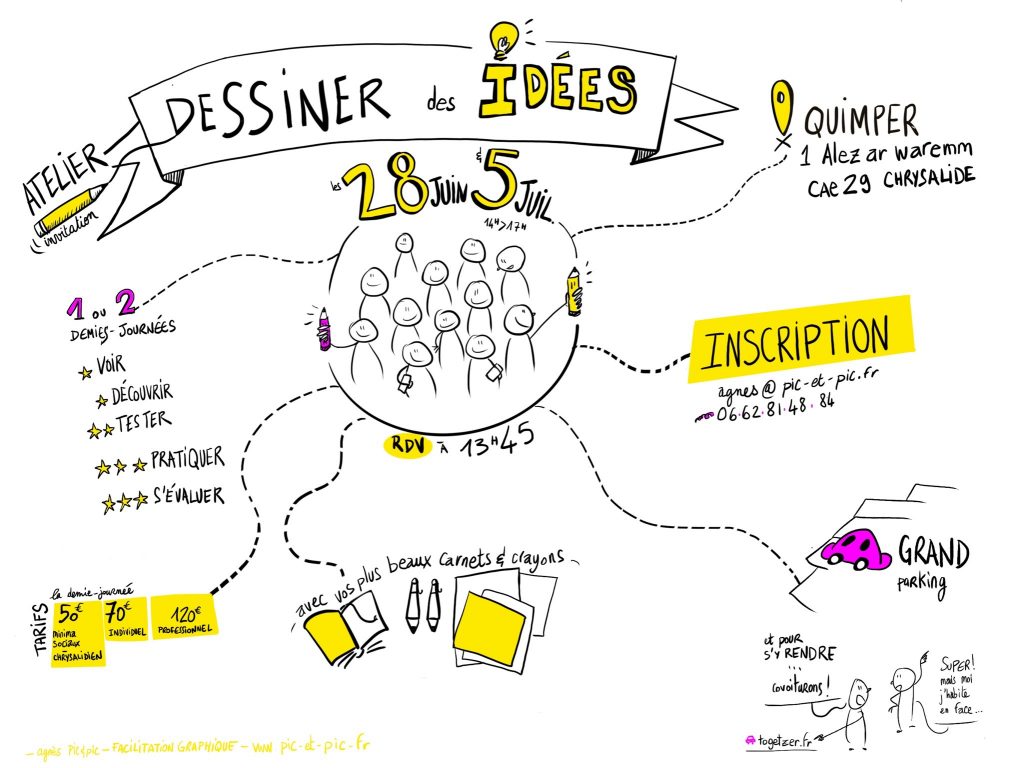 ATELIER
invitation
DESSINER des IDÉES
les 28 JUIN & 5 JUIL
14H>17H
QUIMPER
1 Alez ar waremm
CAE 29 CHRYSALIDE
1 OU 2
DEMIES-JOURNÉES
VOIR
DÉCOUVRIR
TESTER
PRATIQUER
S'ÉVALUER
INSCRIPTION
agnes@pic-et-pic.fr
06.62.81.48.84
RDV À 13H45
avec vos plus beaux carnets & crayons
GRAND
parking
TARIFS
la demie-journée
50€
minima
sociaux
CHRYSALIDIEN
70€
INDIVIDUEL
120€
PROFESSIONNEL
et pour
s'y RENDRE
...
covoiturons!
togetzer.fr
SUPER!
mais moi
j'habite
en face...
- agnès pic&pic - FACILITATION GRAPHIQUE - www.pic-et-pic.fr